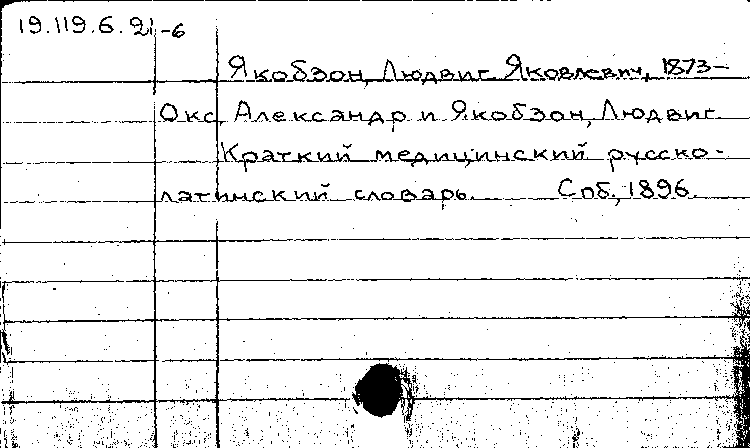 19.119.6.21-6
Якобзон, Людвиг Яковлевич, 1873-
Окс, Александр и Якобзон, Людвиг.
Краткий медицинский русско-
латинский словарь. Спб., 1896.